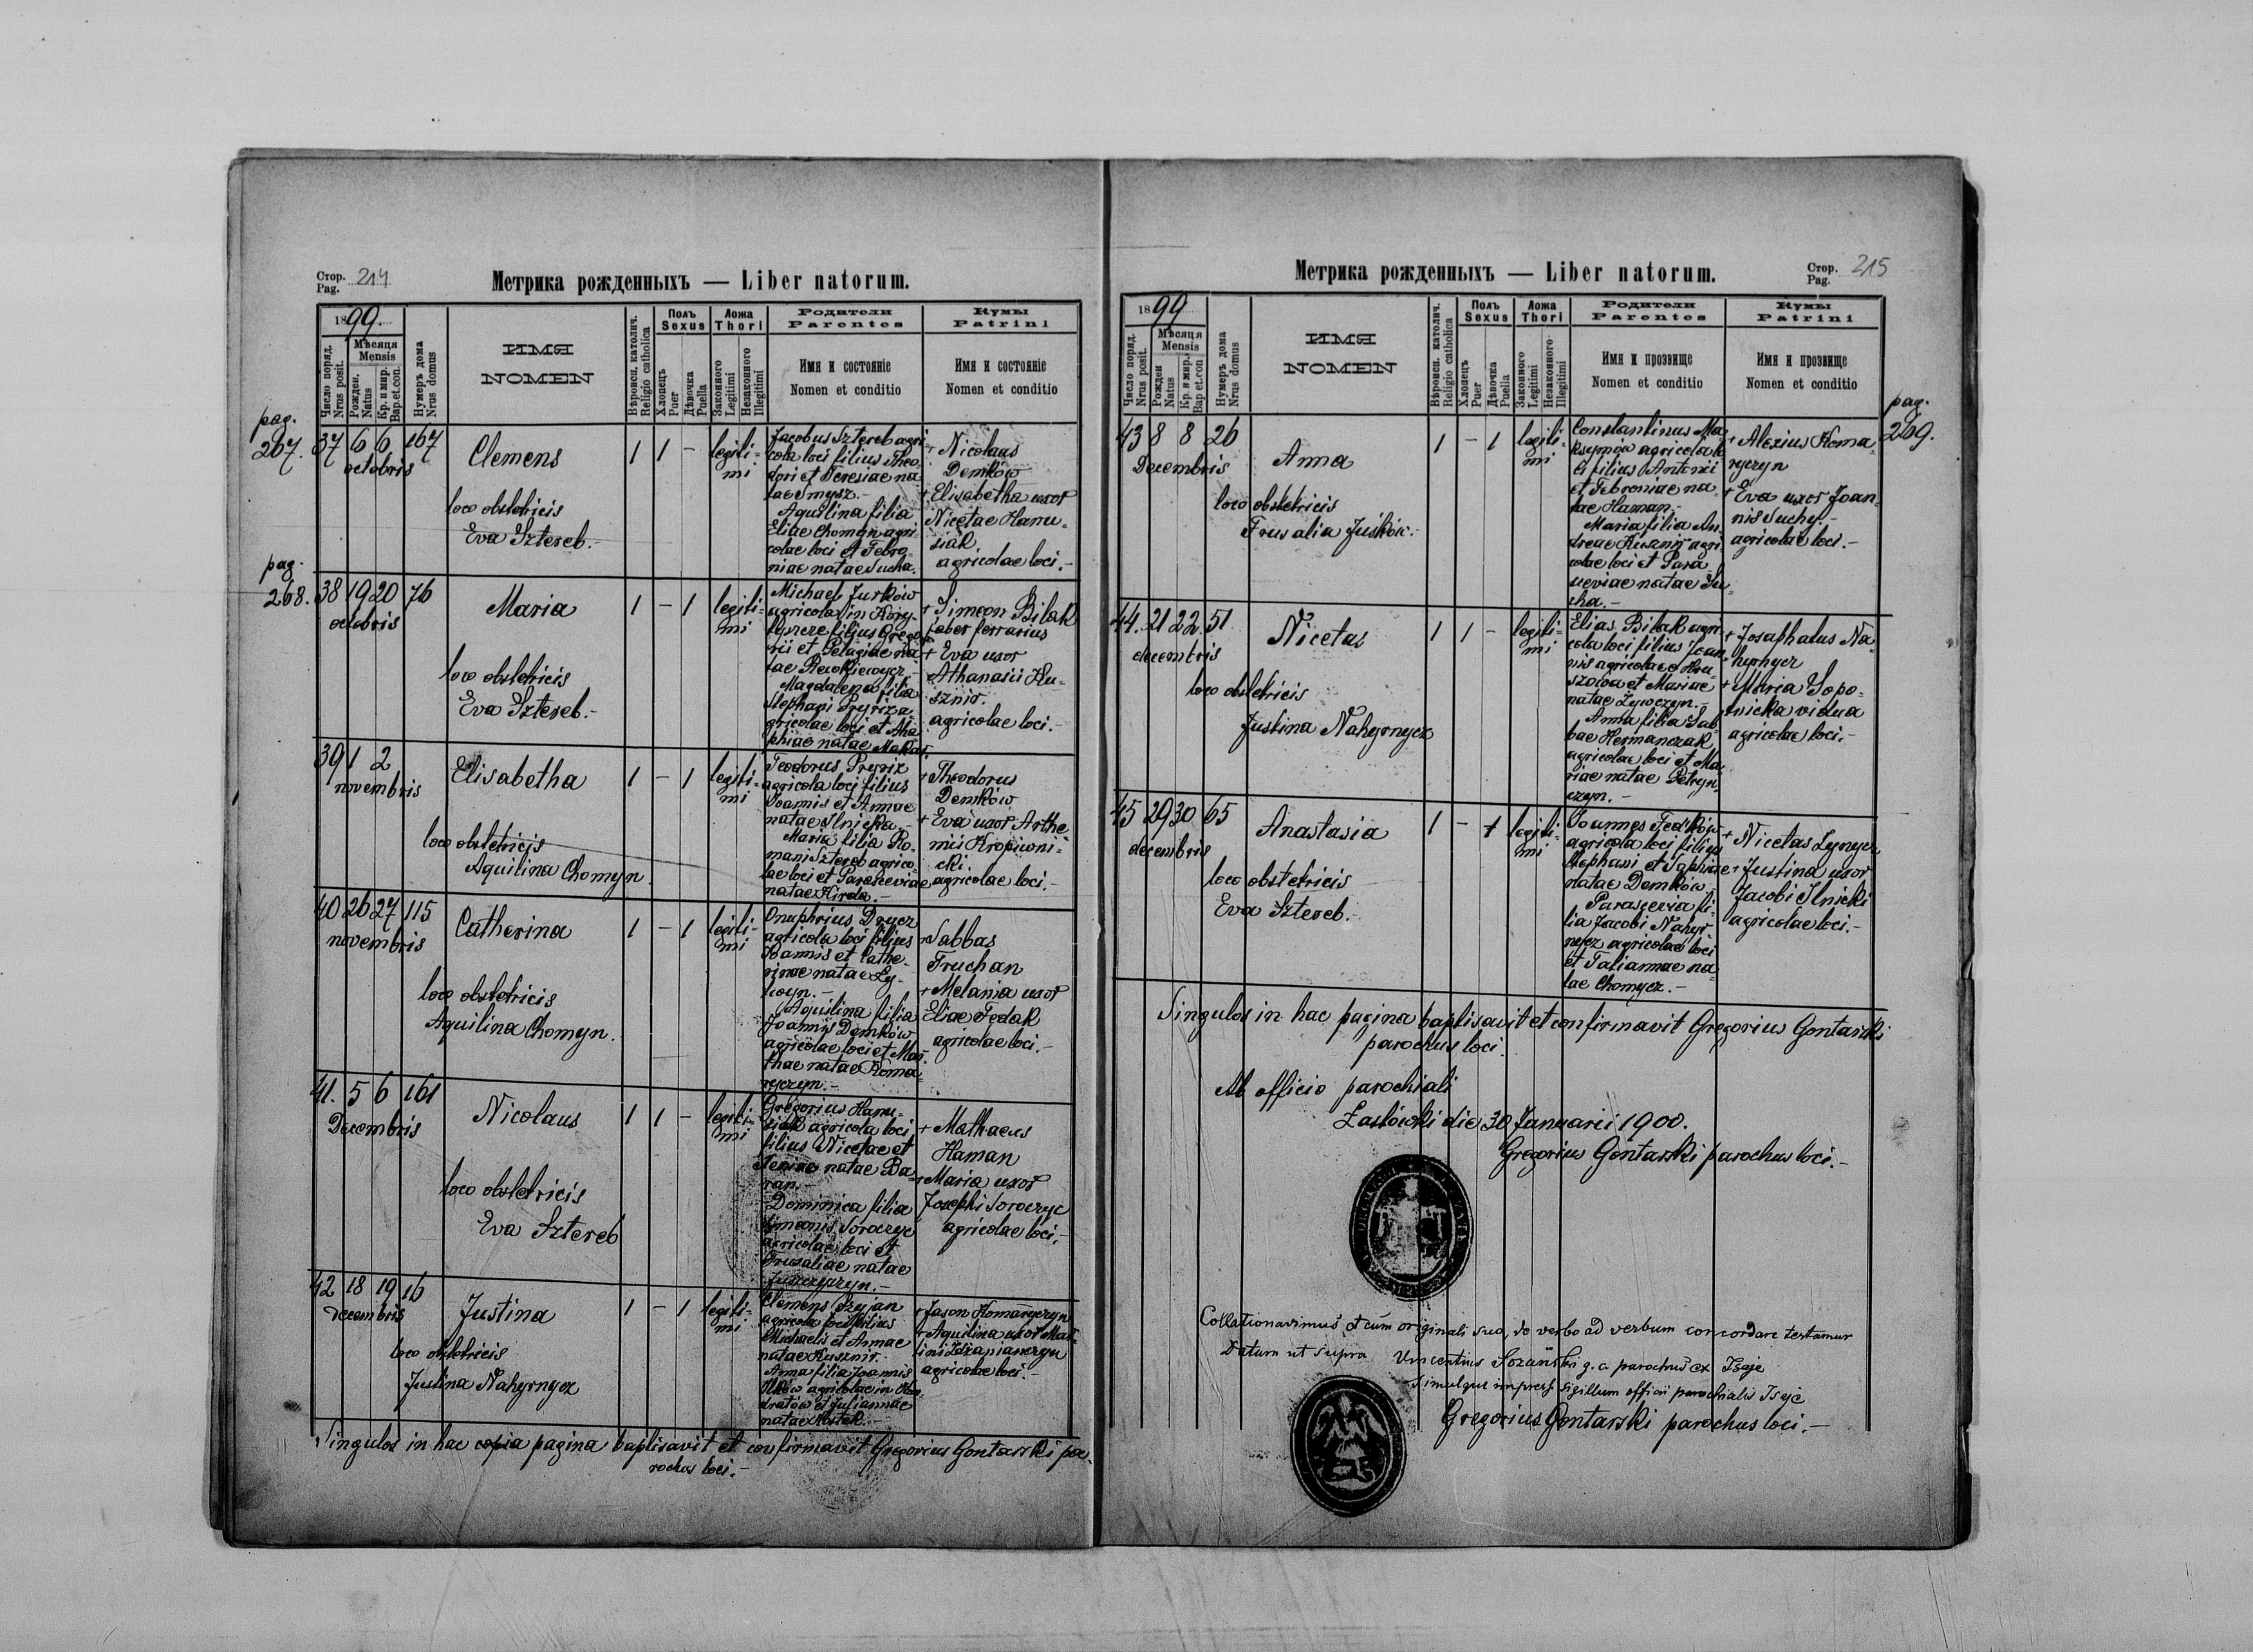 Стор. Pag. 214
Метрика рожденныхъ — Liber natorum.
1899.
Число поряд. Nrus posit.
Мѣсяця Mensis
Рожден. Natus
Кр. и мир. Bap.et.con.
Нумеръ дома Nrus domus
ИМЯ
NOMEN
Вѣроисп. католич. Religio catholica
Полъ Sexus
Хлопецъ Puer
Дѣвочка Puella
Ложа Thori
Законного Legitimi
Незаконного Illegitimi
Родители
Parentes
Имя и состояніе
Nomen et conditio
Кумы
Patrini
Имя и состояніе
Nomen et conditio
pag. 267.
37 6 6 167 Clemens 1 1 - legiti-
octobris mi
loco obstetricis
Eva Sztereb.-
Jacobus Sztereb agri
cola loci filius Theo-
dori et Teresiae na
tae Smysz.-
Aquilina filia
Eliae Chomyn agri
colae loci et Febro-
niae natae Sucha.
+ Nicolaus
Demków
+ Elisabetha uxor
Nicetae Hanu-
siak
agricolae loci.-
pag. 268.
38 19 20 76 Maria 1 - 1 legiti-
octobris mi
loco obstetricis
Eva Sztereb.-
Michael Jurków
agricola in
filius Grego
rii et Pelagiae na
tae
Magdalena filia
Stephani Pryriz a
gricolae loci et
natae Makar
+ Simeon Bilak
faber ferrarius
+ Eva uxor
Athanasii Ku-
sznir.
agricolae loci.-
39 1 2 Elisabetha 1 - 1 legiti-
novembris mi
loco obstetricis
Aquilina Chomyn.
Teodorus Pryriz
agricola loci filius
Joannis et Annae
natae Ilnicka.-
Maria filia Ro-
mani Sztereb agrico
lae loci et Parasceviae
natae Hirda.-
+ Theodorus
Demków
+ Eva uxor Arthe
mii Kropiwni-
cki.
agricolae loci.-
40 26 27 115 Catherina 1 - 1 legiti-
novembris mi
loco obstetricis
Aquilina Chomyn.
Onuphrius Drycz
agricola loci filius
Joannis et Cathe-
rinae natae Ly-
Aquilina filia
Joannis Demków
agricolae loci et Mar
thae natae Koma-
ryczyn.-
+ Sabbas
Truchan
+ Melania uxor
Eliae Fedak
agricolae loci.-
41. 5 6 161 Nicolaus 1 1 - legiti-
Decembris mi
loco obstetricis
Eva Sztereb
Gregorius Hanu-
siak agricola loci
filius Nicetae et
natae Ba-
ran.-
Dominica filia
Simeonis Soroczyc
agricolae loci et
Frusaliae natae
+ Mathaeus
Haman
+ Maria uxor
Josephi Soroczyc
agricolae loci.-
42 18 19 16 Justina 1 - 1 legiti-
decembris mi
loco obstetricis
Justina Nahyrnycz
Clemens
agricola loci filius
Michaelis et Annae
natae Kusznir.
Anna filia Joannis
agricolae in
et Juliannae
natae
+ Jason Komaryczyn
+ Aquilina uxor Mar-
tini
agricolae loci.-
Singulos in hac copia pagina baptisavit et confirmavit Gregorius Gontarski pa-
rochus loci.-
Метрика рожденныхъ — Liber natorum.
Стор. Pag. 215
1899
Число поряд. Nrus posit.
Мѣсяця Mensis
Рожден Natus
Кр. и мир. Bap et.con
Нумеръ дома Nrus domus
ИМЯ
NOMEN
Вѣроисп. католич. Religio catholica
Полъ Sexus
Хлопецъ Puer
Дѣвочка Puella
Ложа Thori
Законного Legitimi
Незаконного Illegitimi
Родители
Parentes
Имя и прозвище
Nomen et conditio
Кумы
Patrini
Имя и прозвище
Nomen et conditio
pag. 269.
43 8 8 26 Anna 1 - 1 legiti-
Decembris mi
loco obstetricis
Frusalia Juśków.
Constantinus Ma
ksymów agricola lo
ci filius Antonii
et Febroniae na-
tae Haman.-
Maria filia An
dreae Kusznir agri
colae loci et Para
sceviae natae Su-
cha.-
+ Alexius Koma
ryczyn
+ Eva uxor Joan-
nis Suchy.-
agricolae loci.-
44. 21 22. 51 Nicetas 1 1 - legiti-
decembris mi
loco obstetricis
Justina Nahyrnycz
Elias Bilak agri-
cola loci filius Joan
nis agricolae e Hru-
szowa et Mariae
natae Zywczyn.-
Anna filia Sab
bae Hermanczak
agricolae loci et Ma
riae natae Petryn
czyn.-
+ Josaphatus Na-
hyrnycz
+ Maria Sopo-
tnicka vidua
agricolae loci.-
45 29 30 65 Anastasia 1 - 1 legiti-
decembris mi
loco obstetricis
Eva Sztereb.-
Joannes Fedków
agricola loci filius
Stephani et Sophiae
natae Demków.-
Parascevia fi-
lia Jacobi Nahyr-
nycz agricolae loci
et Taliannae na-
tae Chomycz.-
+ Nicetas Zynycz
+ Justina uxor
Jacobi Ilnicki
agricolae loci.-
Singulos in hac pagina baptisavit et confirmavit Gregorius Gontarski
parochus loci.
Ab officio parochiali
Zasłówki die 30 Januarii 1900.
Gregorius Gontarski parochus loci.-
Collationavimus et cum originali suo, de verbo ad verbum concordare testamur
Datum ut supra Vincentius Sozański g. c. parochus ex Isaje
simulque impress. sigillum officii parochialis Isaje
Gregorius Gontarski parochus loci.-